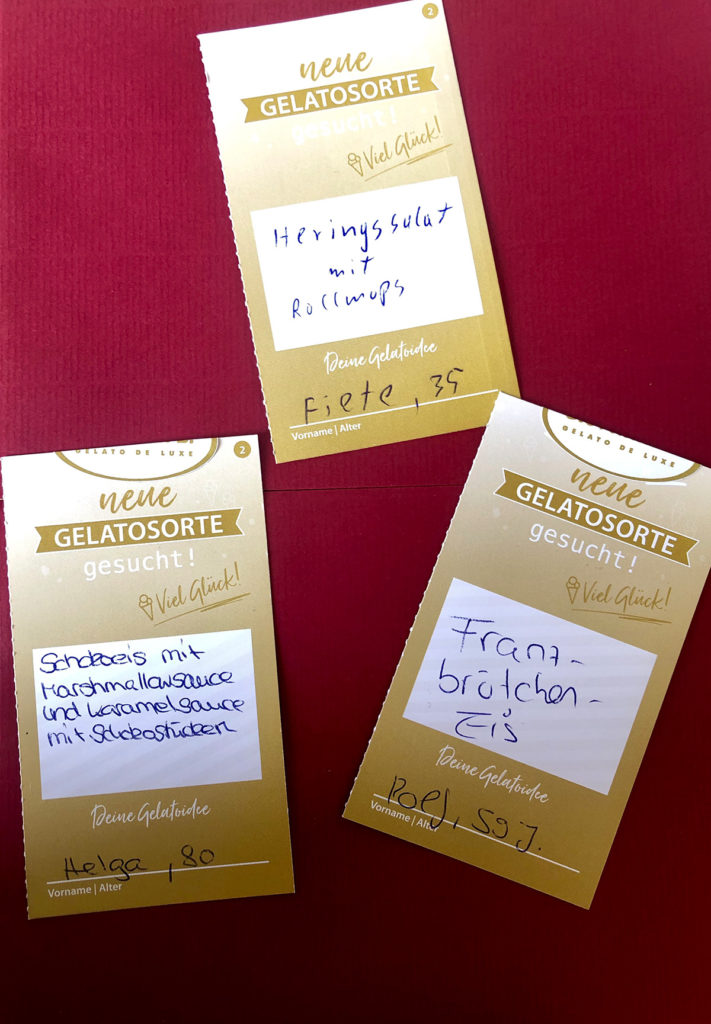 2
neue
GELATOSORTE
gesucht!
Viel Glück!
Heringssalat
mit
Rollmops
Deine Gelatoidee
Fiete, 35
Vorname | Alter
GELATO DE LUXE
2
neue
GELATOSORTE
gesucht!
Viel Glück!
Schokoeis mit
Marshmallowsauce
und Karamelsauce
mit Schokostücken
Deine Gelatoidee
Helga, 80
Vorname | Alter
GELATO DE LUXE
neue
GELATOSORTE
gesucht!
Viel Glück!
Franz-
brötchen-
Eis
Deine Gelatoidee
Rolf, 59 J.
Vorname | Alter